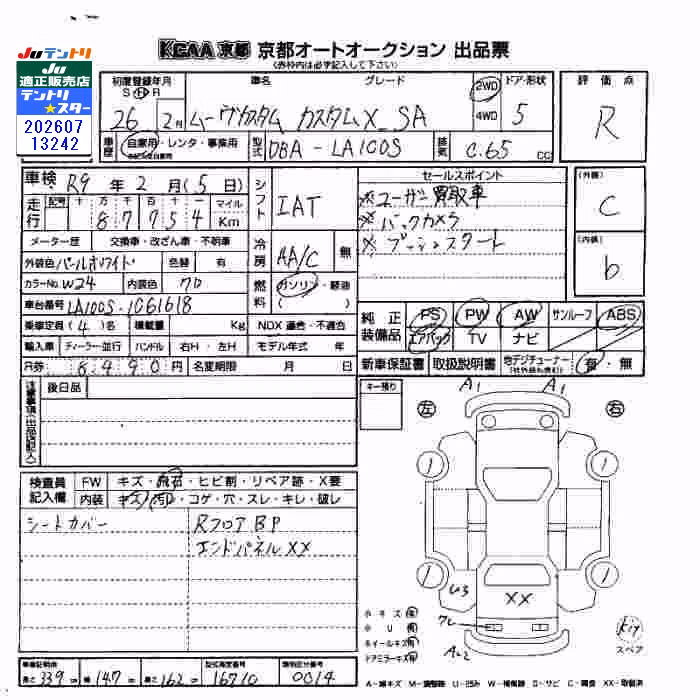 JUテントリ
JU
適正販売店
テントリ
★スター
202607
13242
KCAA 京都 京都オートオークション 出品票
(赤枠内は必ず記入して下さい)
初度登録年月 車名 グレード 2WD ドア・形状 評価点
S H R 4WD
26 2月 ムーヴカスタム カスタムX SA 5 R
車歴 自家用・レンタ・事業用 型式 DBA-LA100S 排気 0.65 cc
車検 R9 年 2 月 (5 日) シフト IAT セールスポイント (外装)
走行 記号 十 万 千 百 十 一 マイル ※ユーザー買取車 C
8 7 7 5 4 Km ※バックカメラ
メーター歴 交換車・改ざん車・不明車 冷房 AA/C 無 ※プッシュスタート (内装)
外装色 パールホワイト 色替 有 b
カラーNo. W24 内装色 燃料 ガソリン・軽油
車台番号 LA100S-1061618 ( )
乗車定員 (4) 名 積載量 Kg NOX 適合・不適合 純正装備品 PS PW AW サンルーフ ABS
輸入車 ディーラー・並行 ハンドル 右H・左H モデル年式 年 エアバッグ TV ナビ
R券 8490 円 名変期限 月 日 新車保証書 取扱説明書 地デジチューナー 有・無
注意事項(出品店記入) 後日品 キー預り A1 A1
左 右
検査員記入欄 FW キズ・飛石・ヒビ割・リペア跡・X要
内装 キズ・汚れ・コゲ・穴・スレ・キレ・破レ
シートカバー RフロアBP
エンドパネルXX
U3 XX
小キズ 有
小U 有
ホイールキズ 有
ドアミラーキズ 有
AU2
キット
スペア
車検証明細 長さ 339 cm 幅 147 cm 高さ 162 cm 型式指定番号 16710 類別区分番号 0014